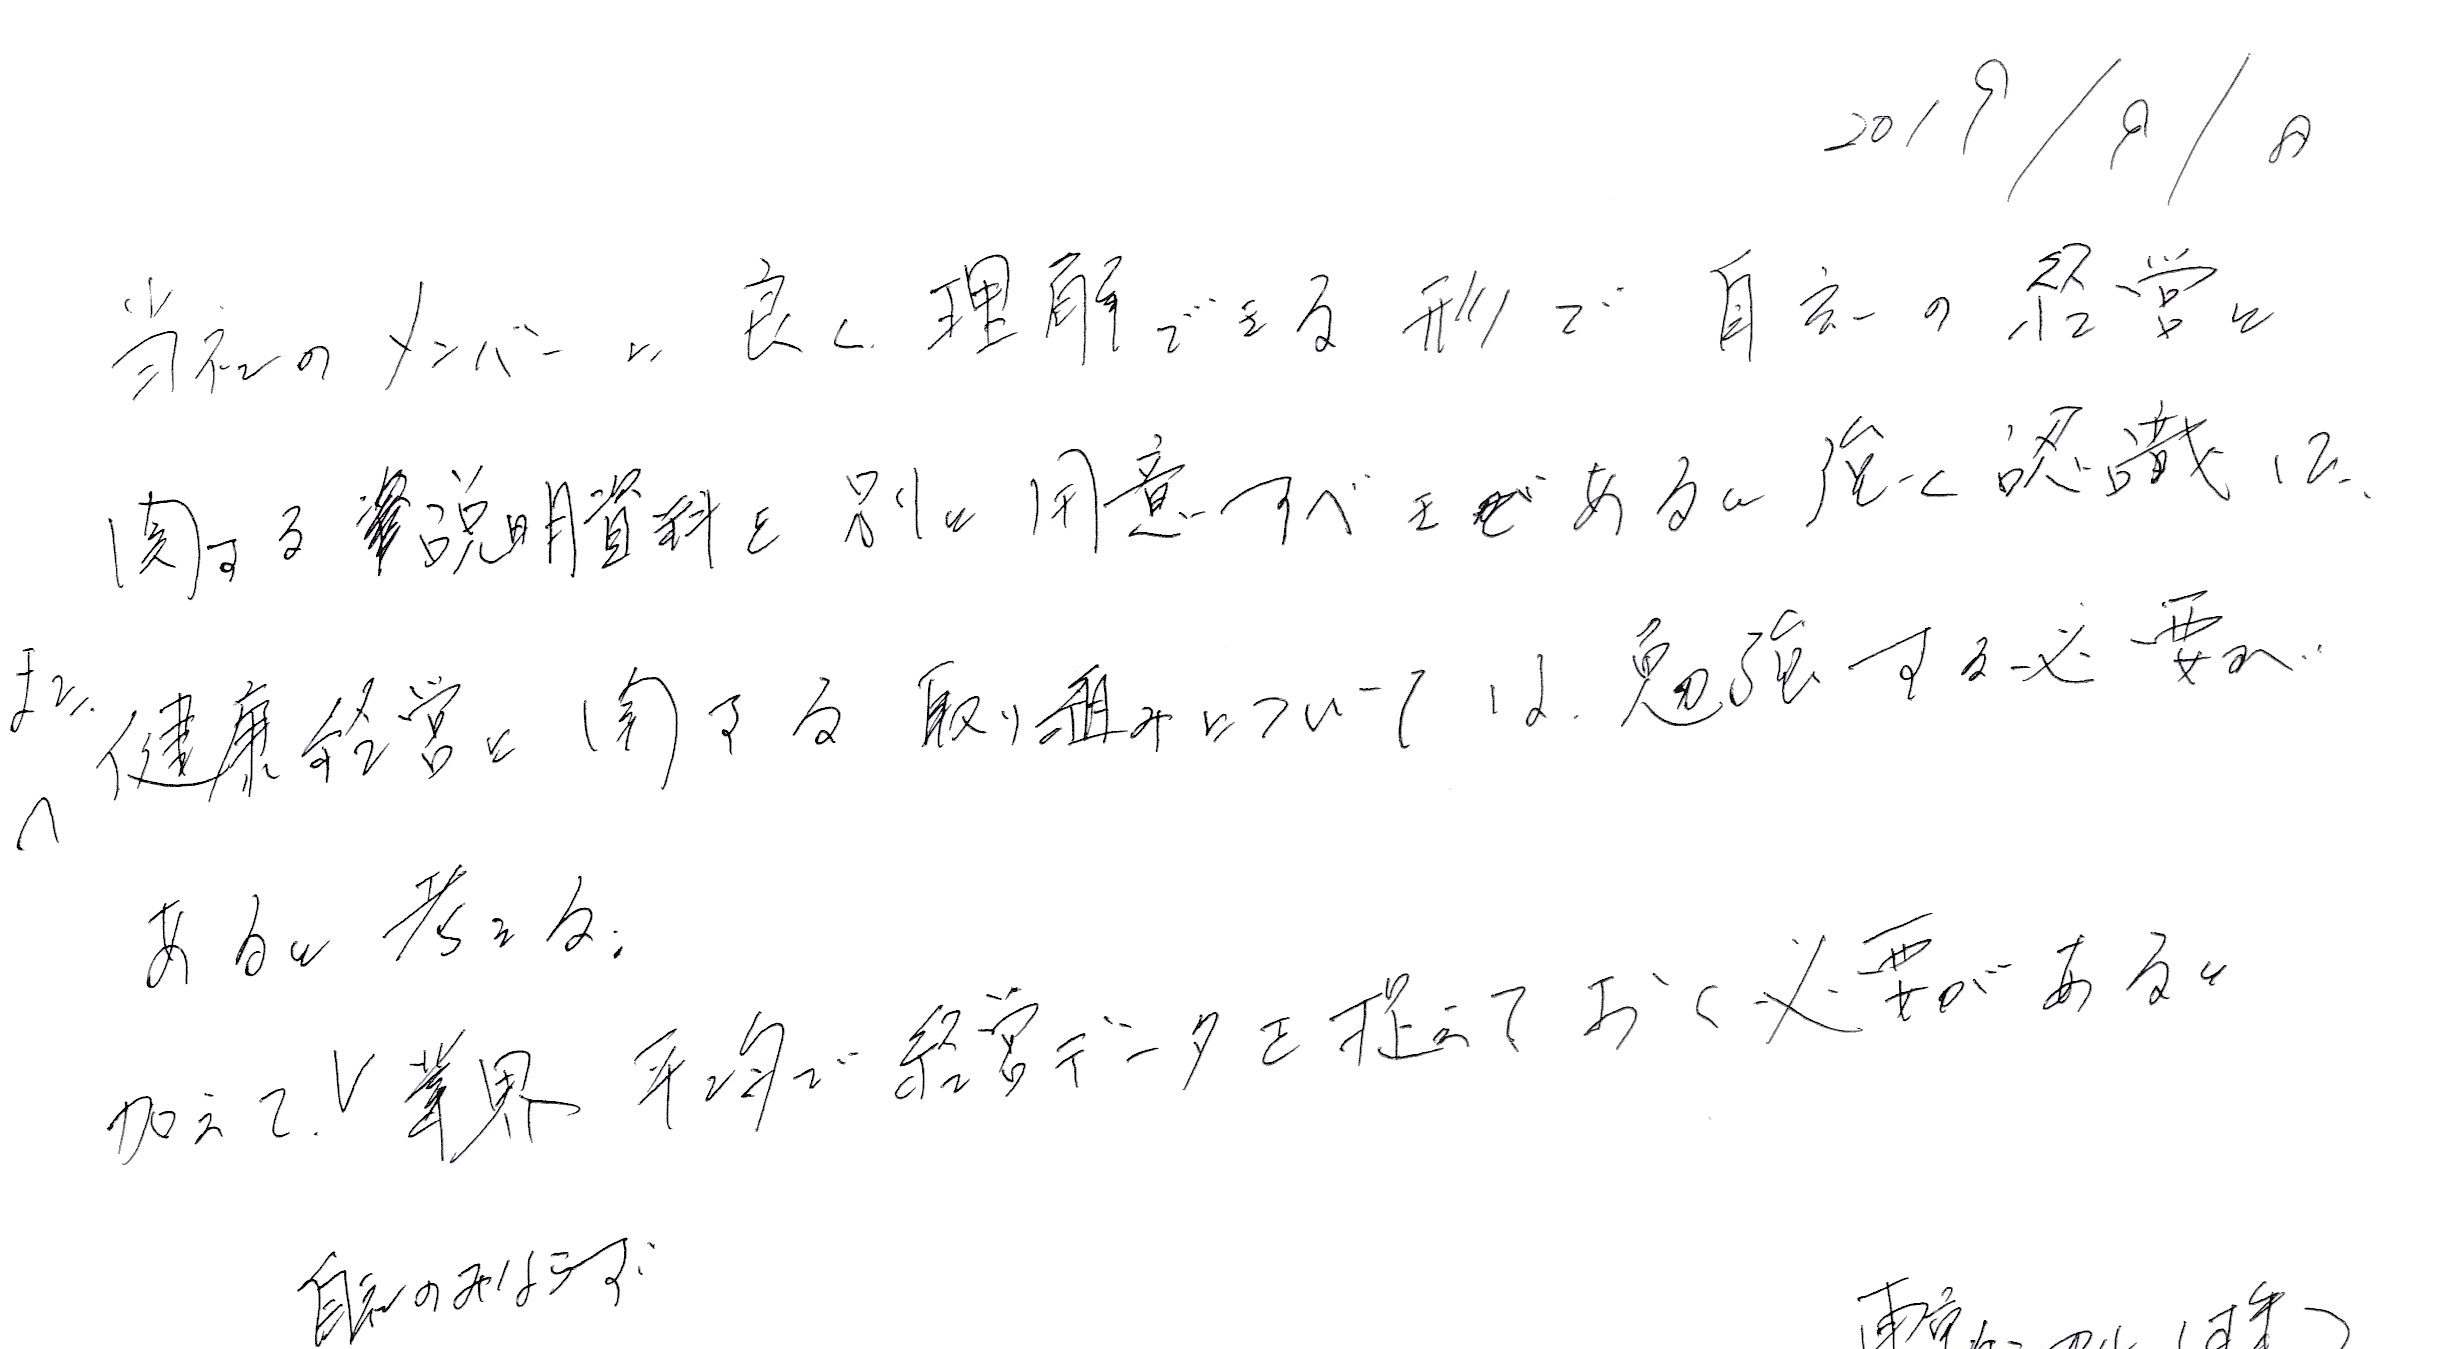 2019/9/8
当社のメンバーに良く理解できる形で自社の経営に
関する説明資料を別に用意すべきであると強く認識した。
また、健康経営に関する取り組みについては、勉強する必要が
あると考える。
加えて、業界平均で経営データを捉えておく必要があると
自社のみならず、
(株)